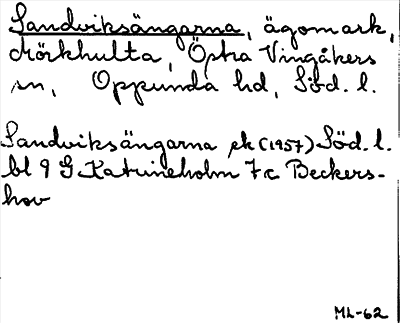 Sandviksängarna, ägomark,
Mörkhulta, Östra Vingåkers
sn, Oppunda hd, Söd. l.
Sandviksängarna ek (1957) Söd. l.
bl 9 G Katrineholm 7c Beckers-
hov
ML-62